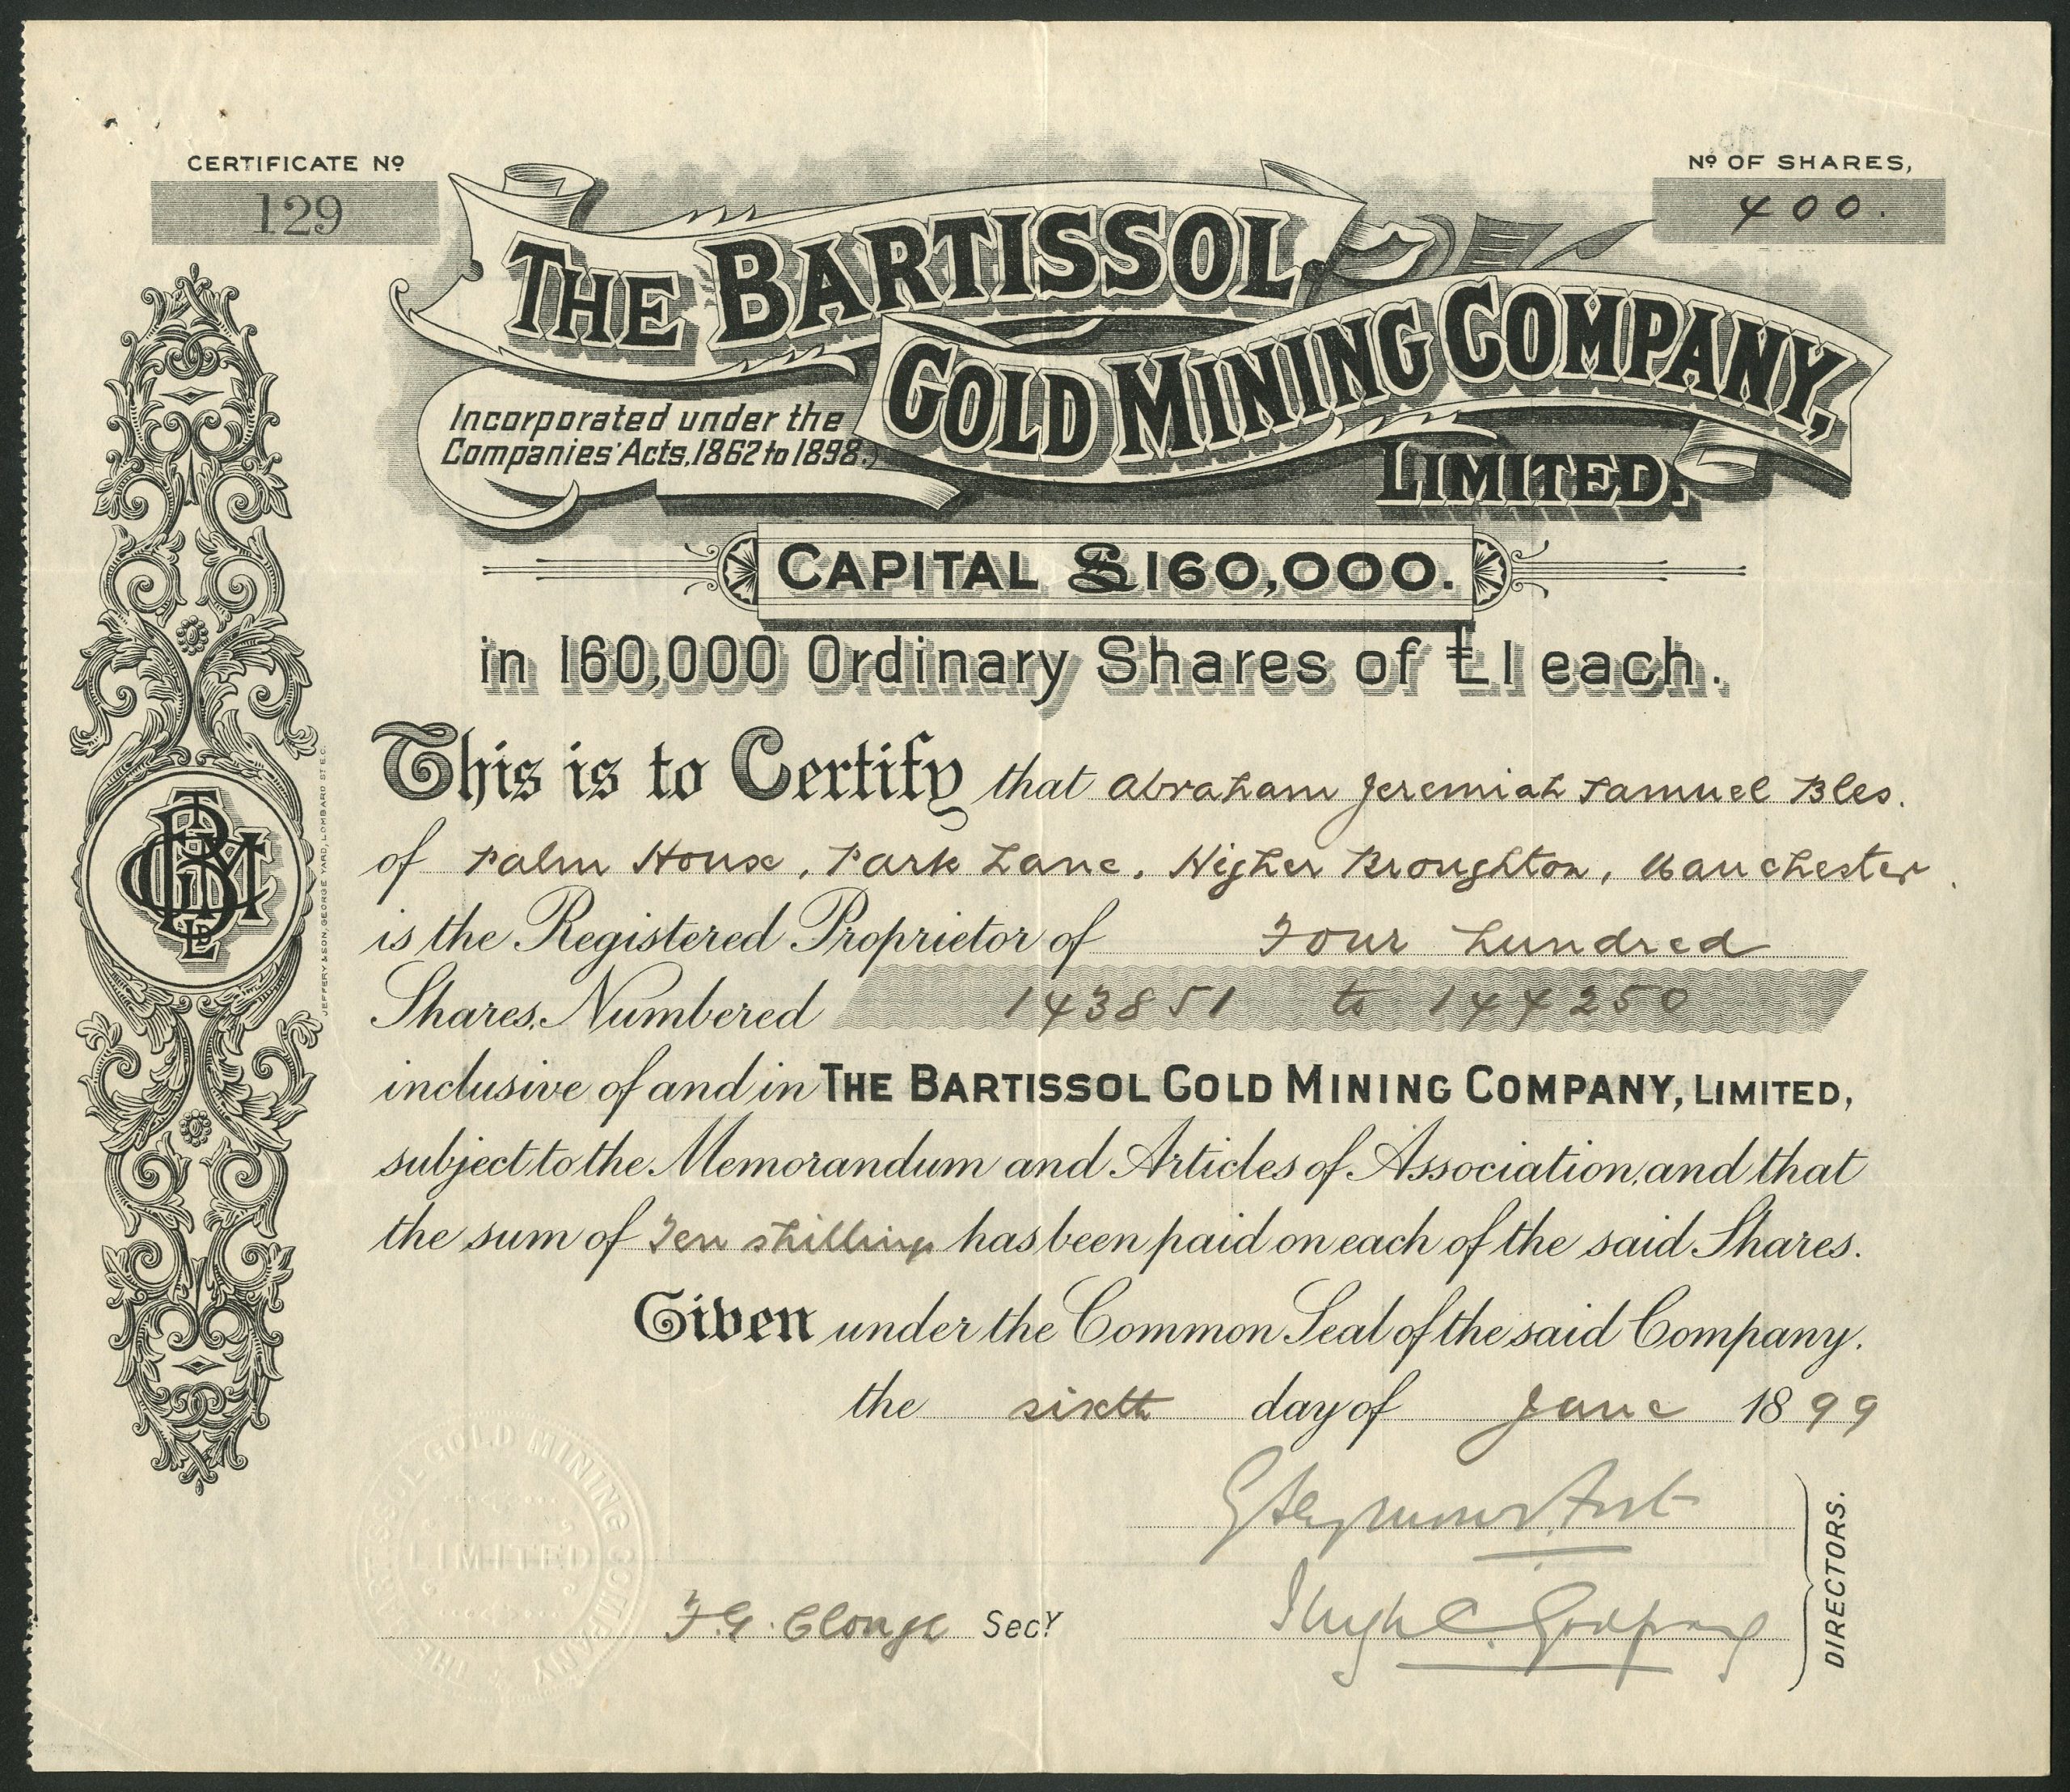 CERTIFICATE Nº
129
Nº OF SHARES,
400.
THE BARTISSOL
GOLD MINING COMPANY,
LIMITED.
Incorporated under the
Companies' Acts, 1862 to 1898.
CAPITAL £160,000.
in 160,000 Ordinary Shares of £1 each.
This is to Certify that Abraham Jeremiah Samuel Bles.
of Palm House, Park Lane, Higher Broughton, Manchester.
is the Registered Proprietor of Four hundred
Shares, Numbered 143851 to 144250
inclusive of and in THE BARTISSOL GOLD MINING COMPANY, LIMITED,
subject to the Memorandum and Articles of Association, and that
the sum of Ten shillings has been paid on each of the said Shares.
Given under the Common Seal of the said Company.
the sixth day of June 1899
G Seymour Fort
Hugh C. Godfray
DIRECTORS.
F.G. Clough Secy
THE BARTISSOL GOLD MINING COMPANY
LIMITED
JEFFERY & SON, GEORGE YARD, LOMBARD ST E.C.